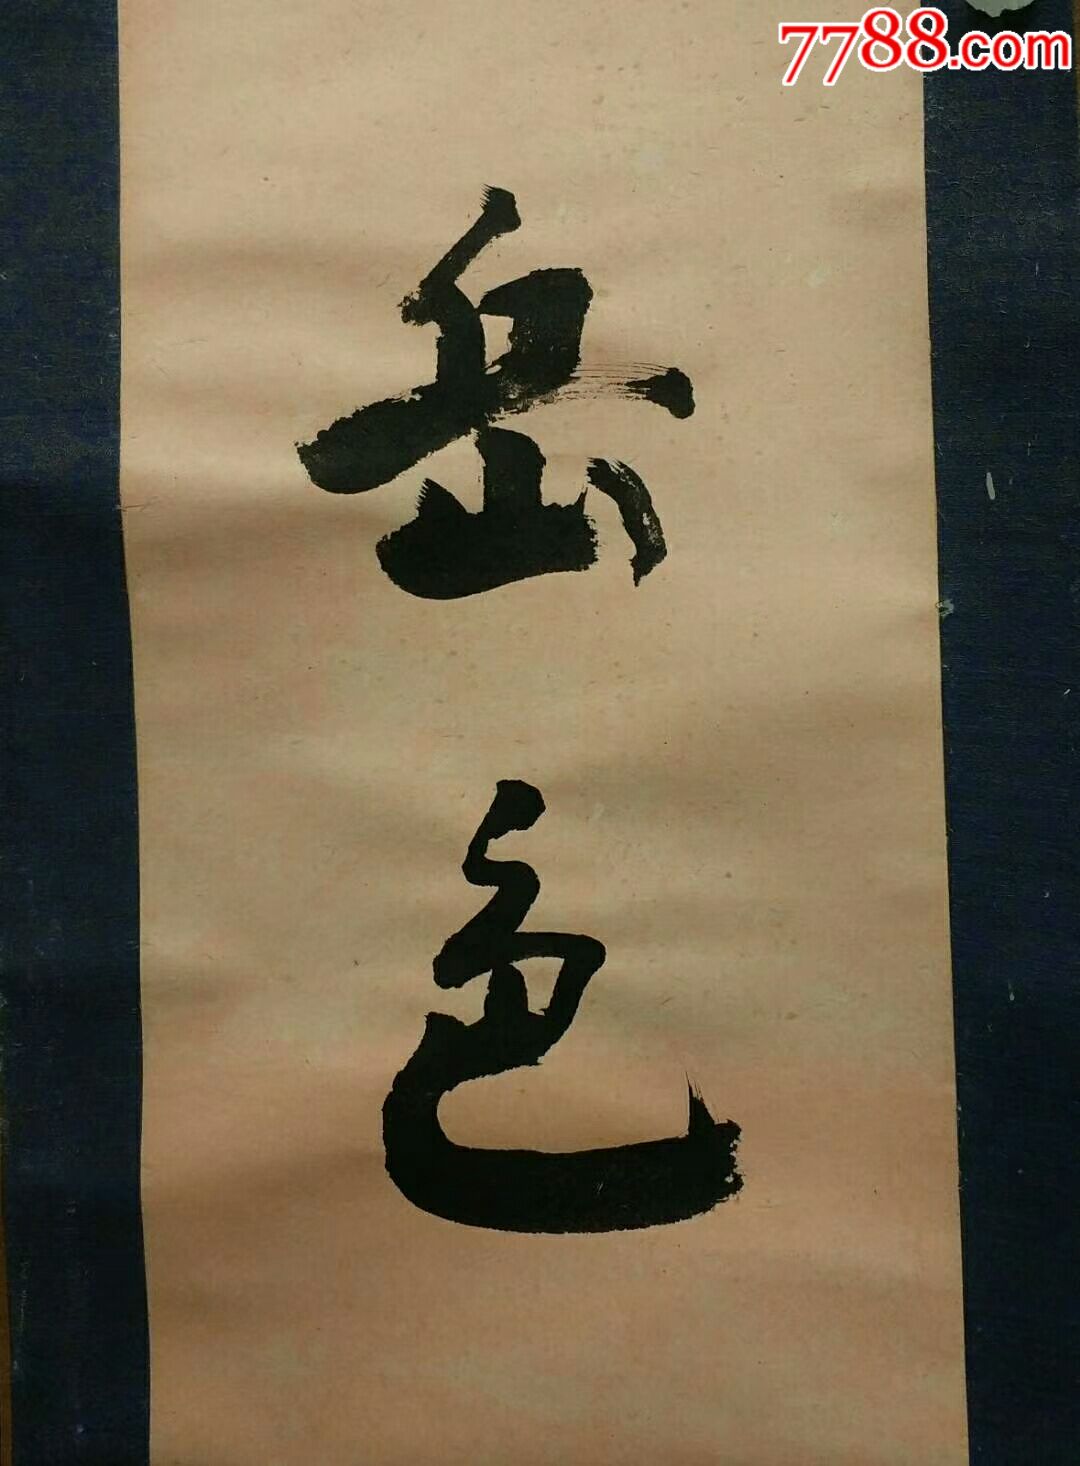 7788.com
岳
色